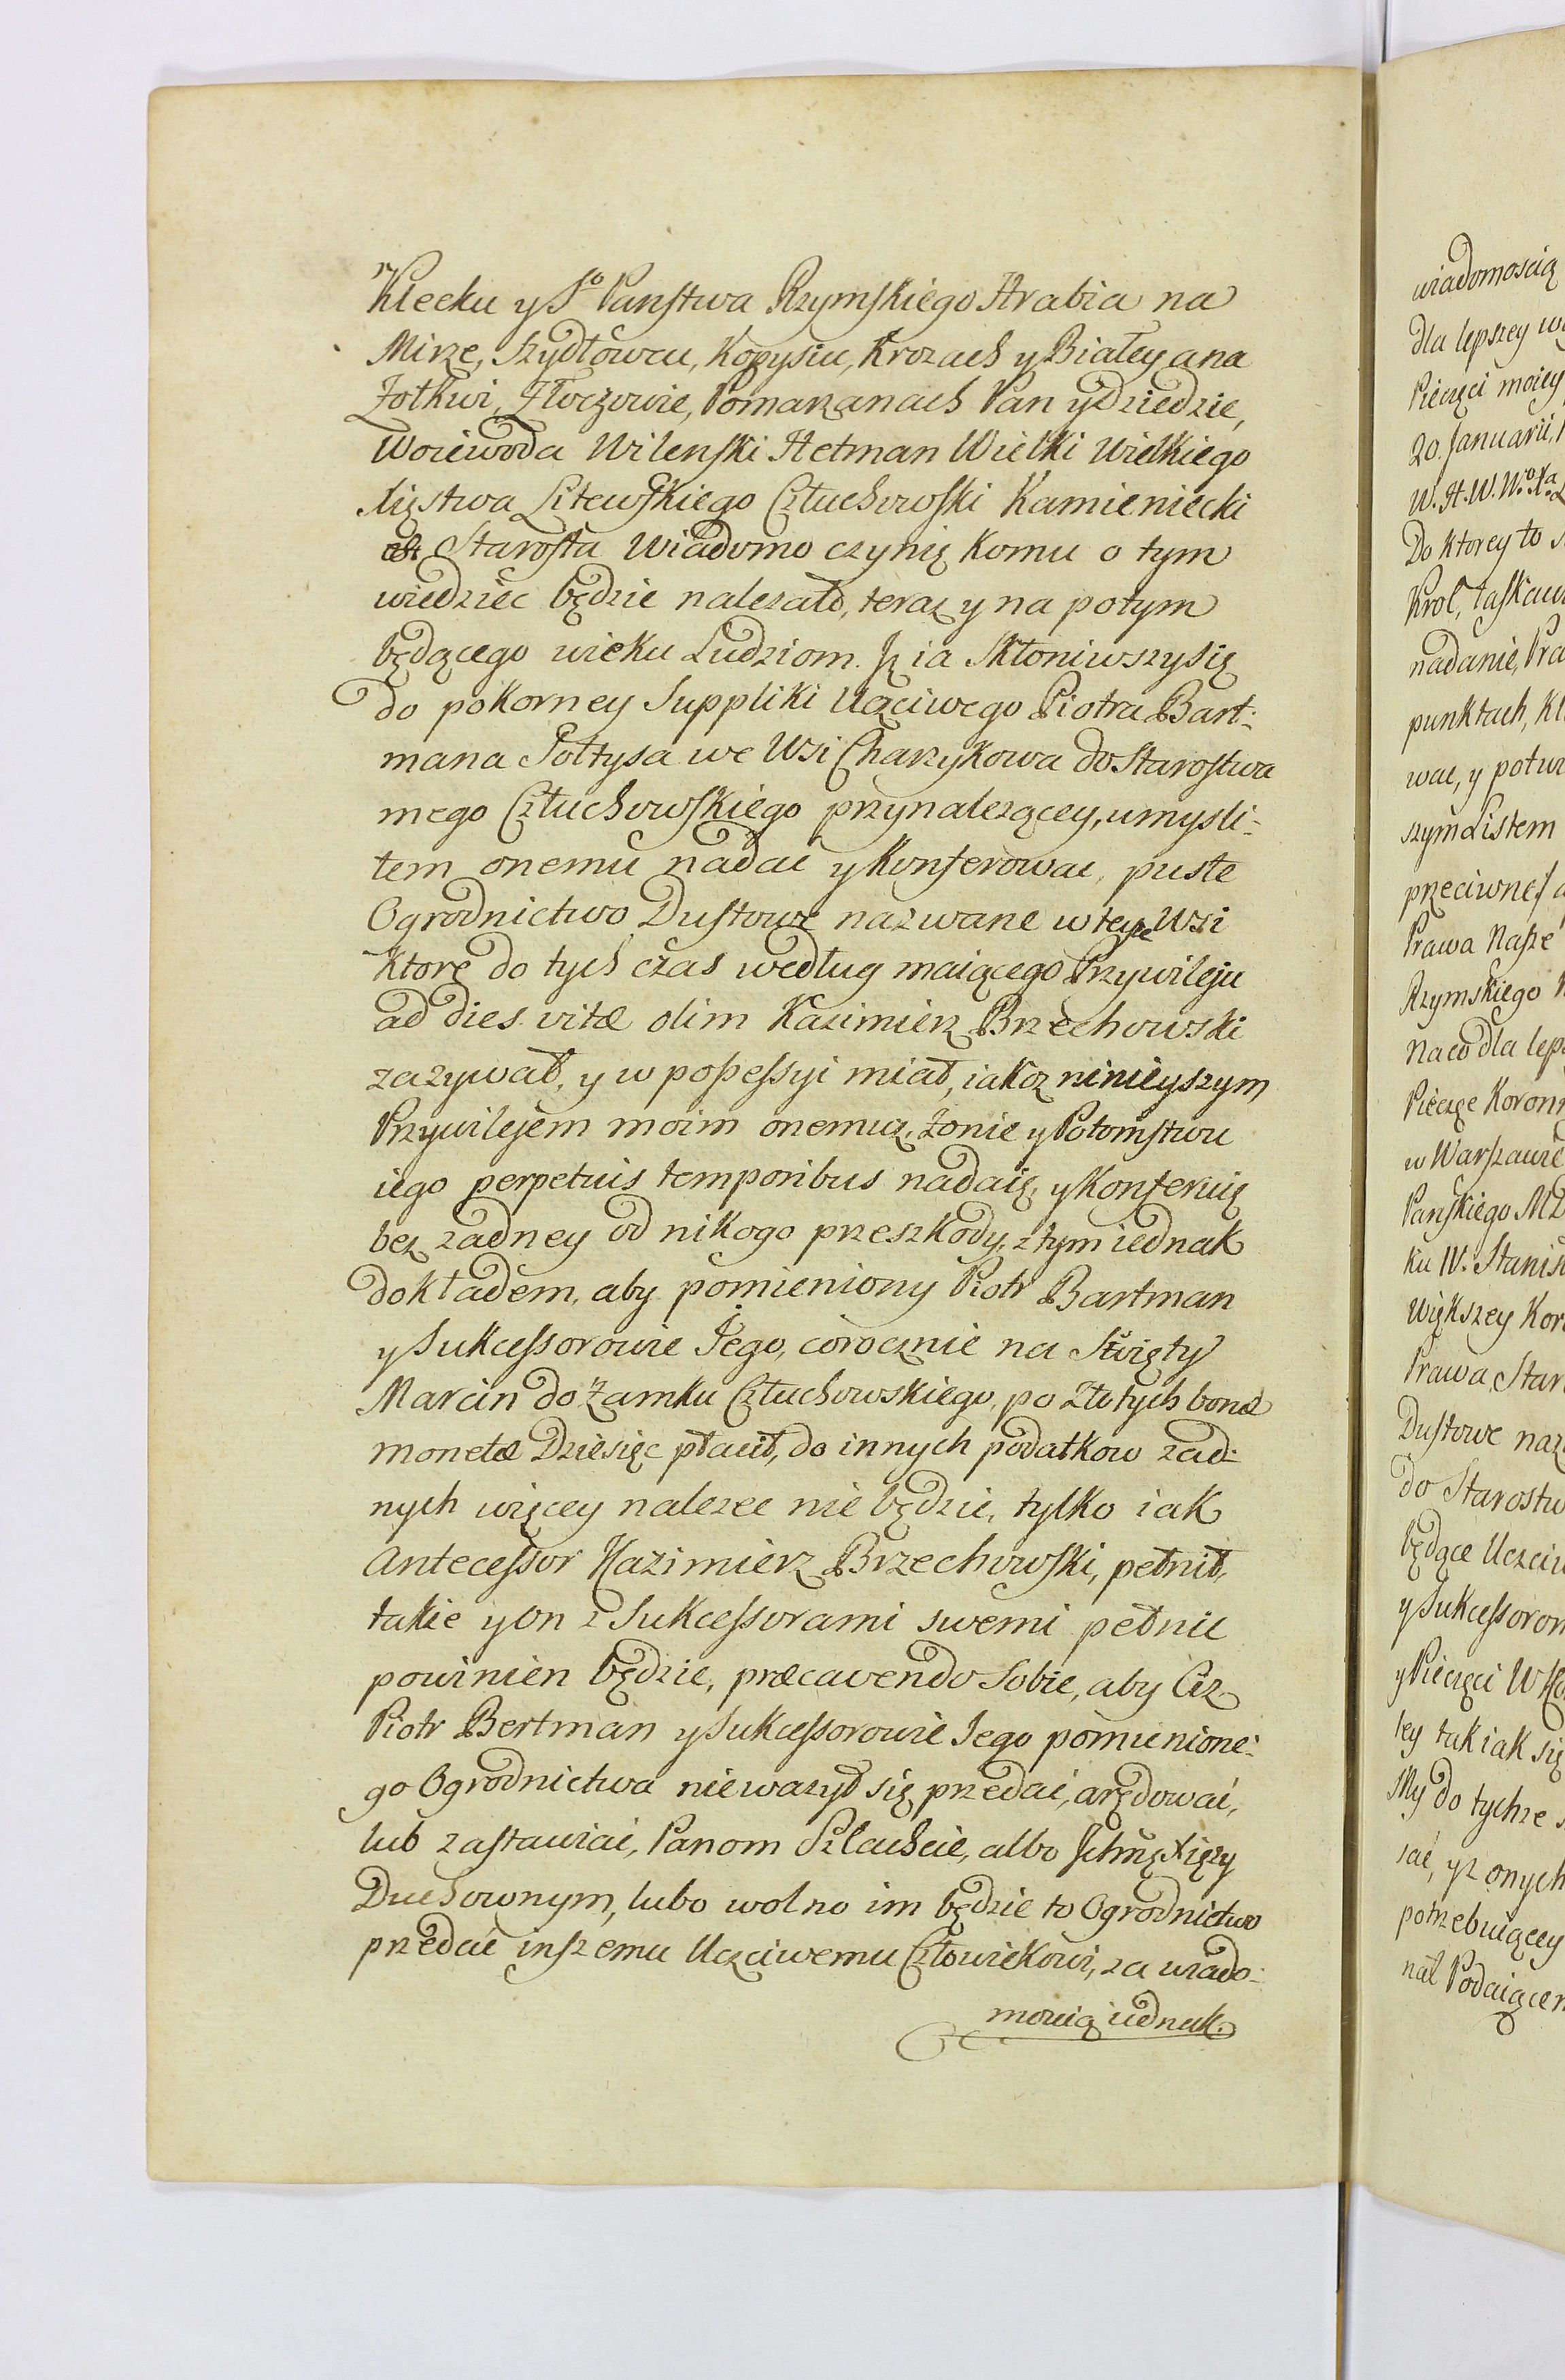 Klecku y So Panstwa Rzymskiego Hrabia na
Mirze, Szydłowcu, Kopysiu, Krozach y Białey a na
Zołkwi, Złoczowie, Pomarzanach Pan y Dziedzic,
Woiewoda Wilenski Hetman Wielki Wielkiego
Xięstwa Litewskiego Człuchowski Kamieniecki
Starosta Wiadomo czynię komu o tym
wiedziec będzie nalezało, teraz y na potym
będącego wieku Ludziom. Jż ia Skłoniwszy się
do pokorney Suppliki Uczciwego Piotra Bart:
mana Sołtysa we Wsi Charzykowa do Starostwa
mego Człuchowskiego przynalezącey, umysli:
łem onemu nadac y konferowac, puste
Ogrodnictwo Dustowe nazwane w teyze Wsi
Ktore do tych czas według maiącego Przywileju
ad dies vitæ olim Kazimierz Brzechowski
zazywał, y w possessyi miał, iakoz ninieyszym
Przywilejem moim onemuz, Zonie y Potomstwu
iego perpetuis temporibus nadaię, y Konferuię
bez zadney od nikogo przeszkody, z tym iednak
dokładem, aby pomieniony Piotr Bartman
y Sukcessorowie Jego, corocznie na Swięty
Marcin do Zamku Człuchowskiego, po złotych bonæ
monetæ Dziesięc płacił, do innych podatkow zad:
nych więcey nalezec nie będzie, tylko iak
Antecessor Kazimierz Brzechowski, pełnił,
takie y on z Sukcessorami swemi pełnic
powinien będzie, præcavendo Sobie, aby Ciz
Piotr Bertman y Sukcessorowie Jego pomienione:
go Ogrodnictwa niewazył się przedać, arędować,
lub zastawiać, Panom Szlachcie, albo Xięzy
Duchownym, lubo wolno im będzie to Ogrodnictwo
przedać inszemu Uczciwemu Człowiekowi, za wiado:
moscią iednak.
wiadomoscią
dla lepszey
Pieczęci moiey
20. Januarii,
W. H. W.
Do ktorey to
Krol,
nadanie,
punktach,
wac, y
szym Listem
przeciwnes
Prawa Nasze
Rzymskiego
Na co dla
Pieczęc
w Warszawie
Panskiego
ku IV.
Większey
Prawa
Dustowe
do
będące
y
y Pieczęci
ley tak iak się
My do tychze
y onych
potrzebuiącey